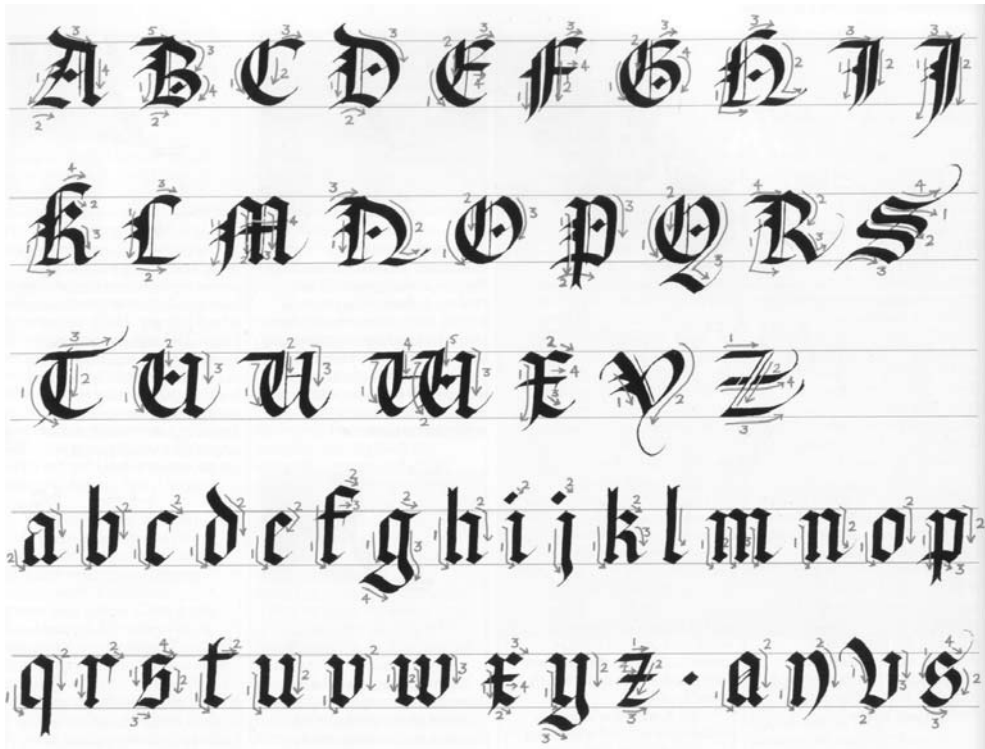 A B C D E F G H I J
K L M N O P Q R S
T U V W X Y Z
a b c d e f g h i j k l m n o p
q r s t u v w x y z · a n v s